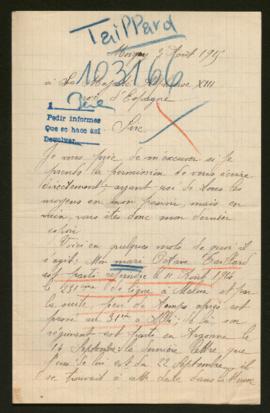 Taillard
Moigny 3 Août 1915
103160
à Sa Majesté Alphonse XIII
roi d'Espagne
Pedir informes
Que se hace así
Devolver
Sire
Je vous prie de m'excuser si je
prends la permission de vous écrire
directement, ayant usé de tous les
moyens en mon pouvoir, mais en
vain, vous êtes donc mon dernier
espoir
Voici en quelques mots de quoi il
s'agit. Mon mari Octave Taillard
est parti rejoindre le 11 Août 1914
le 231ème de ligne à Melun et par
la suite peu de temps après est
passé au 31e
régiment est partie en Argonne le
14 Septembre la dernière lettre que
j'eus de lui est du 22 Septembre, il
se trouvait à dans la Meuse